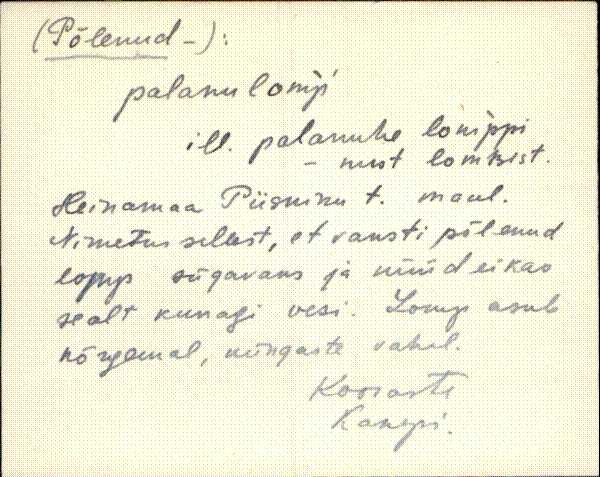 (Põlenud -):
palanu lomp
ill. palanuhe lomppi
- nust lombist.
Heinamaa Piisninu t. maal.
Nimetus sellest, et vansti põlenud
lomp sügavaus ja nüüd ei kao
sealt kunagi vesi. Lomp asub
nõrgemal, küngaste vahel.
Kooraste
Kanepi.